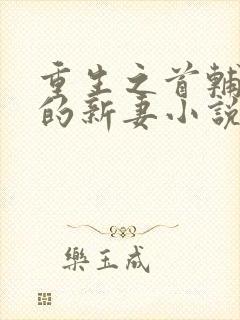 重生之首輔
的新妻小說
樂玉成